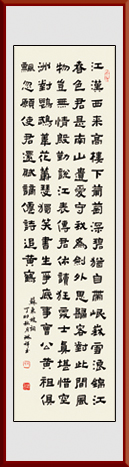 江漢西來高樓下葡萄深碧猶自帶岷峨雪浪錦江
春色君是南山遺愛守我為劍外思歸客對此間風
物豈無情殷勤說江表傳君休讀狂處士真堪惜空
洲對鸚鵡葦花蕭瑟獨笑書生爭底事曹公黃祖俱
飄忽願使君還賦謫仙詩追黃鶴
蘇東坡詞